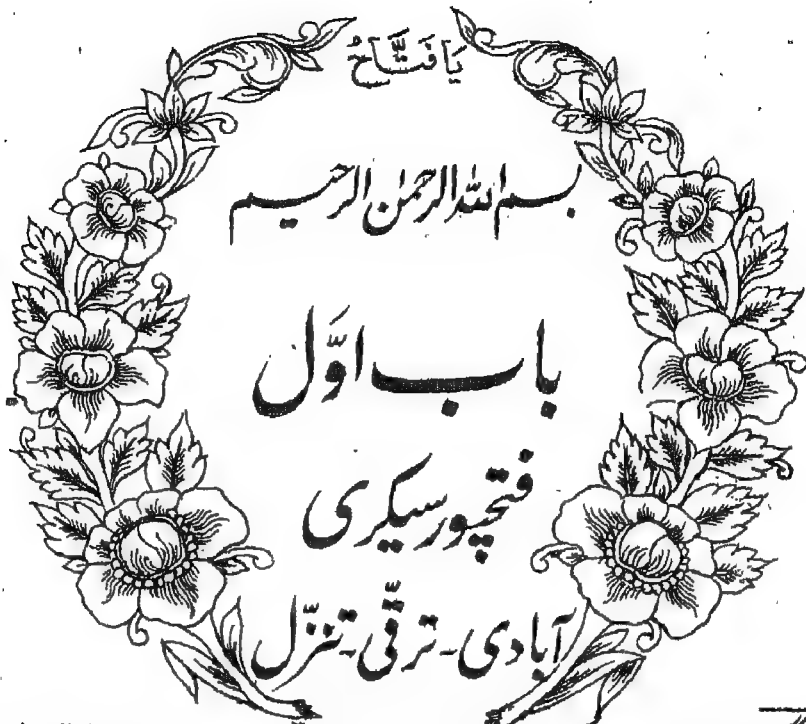 یَا فَتَّاحُ
بسم اللہ الرحمٰن الرحیم
باب اوَّل
فتحپور سیکری
آبادی۔ترقّی۔تنزّل